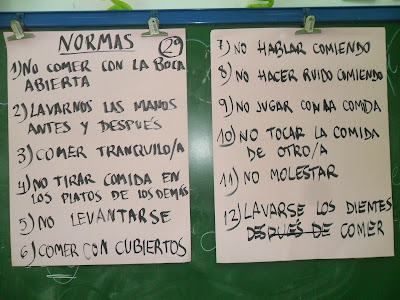 NORMAS 29
1) NO COMER CON LA BOCA
ABIERTA
2) LAVARNOS LAS MANOS
ANTES Y DESPUÉS
3) COMER TRANQUILO/A
4) NO TIRAR COMIDA EN
LOS PLATOS DE LOS DEMÁS
5) NO LEVANTARSE
6) COMER CON CUBIERTOS
7) NO HABLAR COMIENDO
8) NO HACER RUIDO COMIENDO
9) NO JUGAR CON LA COMIDA
10) NO TOCAR LA COMIDA
DE OTRO/A
11) NO MOLESTAR
12) LAVARSE LOS DIENTES
DESPUÉS DE COMER